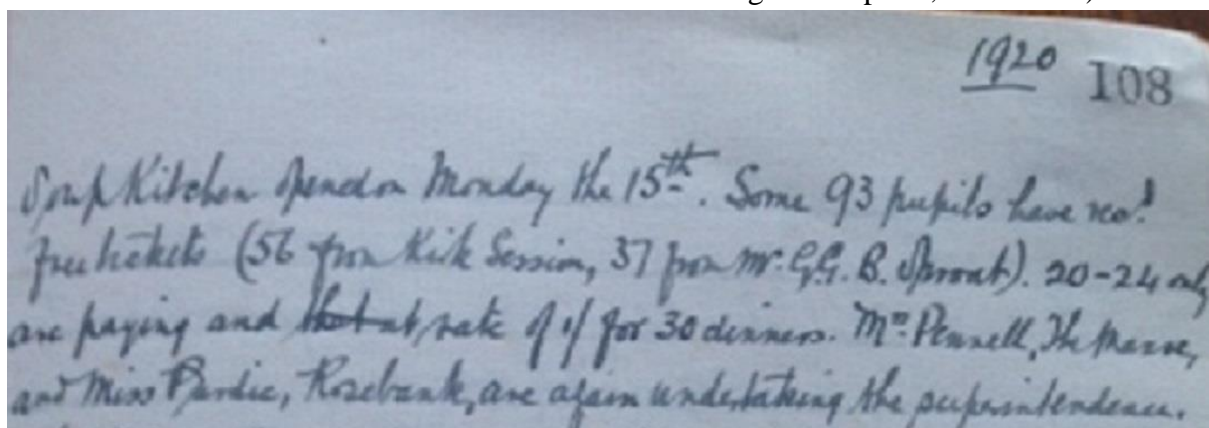 1920 108
Soup Kitchen opened on Monday the 15th. Some 93 pupils have recd.
free tickets (56 from Kirk Session, 37 from Mr. G.G. B. Sproat). 20-24 only
are paying and that at rate of 1/ for 30 dinners. Mrs. Pennell, The Manse,
and Miss Pardie, Rosebank, are again undertaking the superintendence.